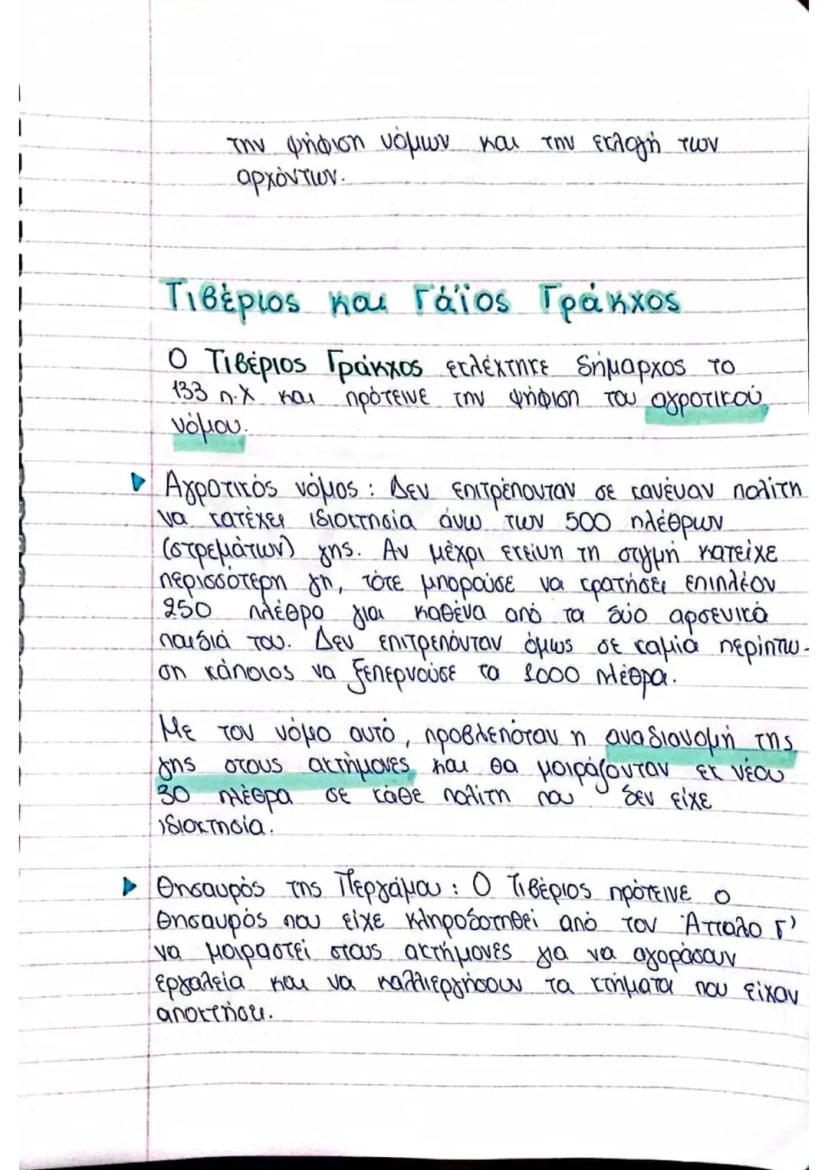 την ψήφιση νόμων και την εκλογή των
αρχόντων.
Τιβέριος και Γάϊος Γράκχος
Ο Τιβέριος Γράκχος εκλέχτηκε δήμαρχος το
133 π.Χ και πρότεινε την ψήφιση του αγροτικού
νόμου.
Αγροτικός νόμος : Δεν επιτρέπουταν σε κανέναν πολίτη
να κατέχει ιδιοκτησία άνω των 500 πλέθρων
(στρεμάτων) γης. Αν μέχρι εκείνη τη στιγμή κατείχε
περισσότερη γη, τότε μπορούσε να κρατήσει επιπλέον
250 πλέθρα για καθένα από τα δύο αρσενικά
παιδιά του. Δεν επιτρεπόνταν όμως σε καμία περίπτω-
ση κάποιος να ξεπερνούσε τα 1000 πλέθρα.
Με τον νόμο αυτό, προβλεπόταν η αναδιανομή της
γης στους ακτήμονες και θα μοιράζονταν εκ νέου
30 πλέθρα σε κάθε πολίτη που δεν είχε
ιδιοκτησία.
Θησαυρός της Περγάμου : Ο Τιβέριος πρότεινε ο
θησαυρός που είχε κληροδοτηθεί από τον Άτταλο Γ'
να μοιραστεί στους ακτήμονες για να αγοράσουν
εργαλεία και να καλλιεργήσουν τα κτήματα που είχαν
αποκτήσει.